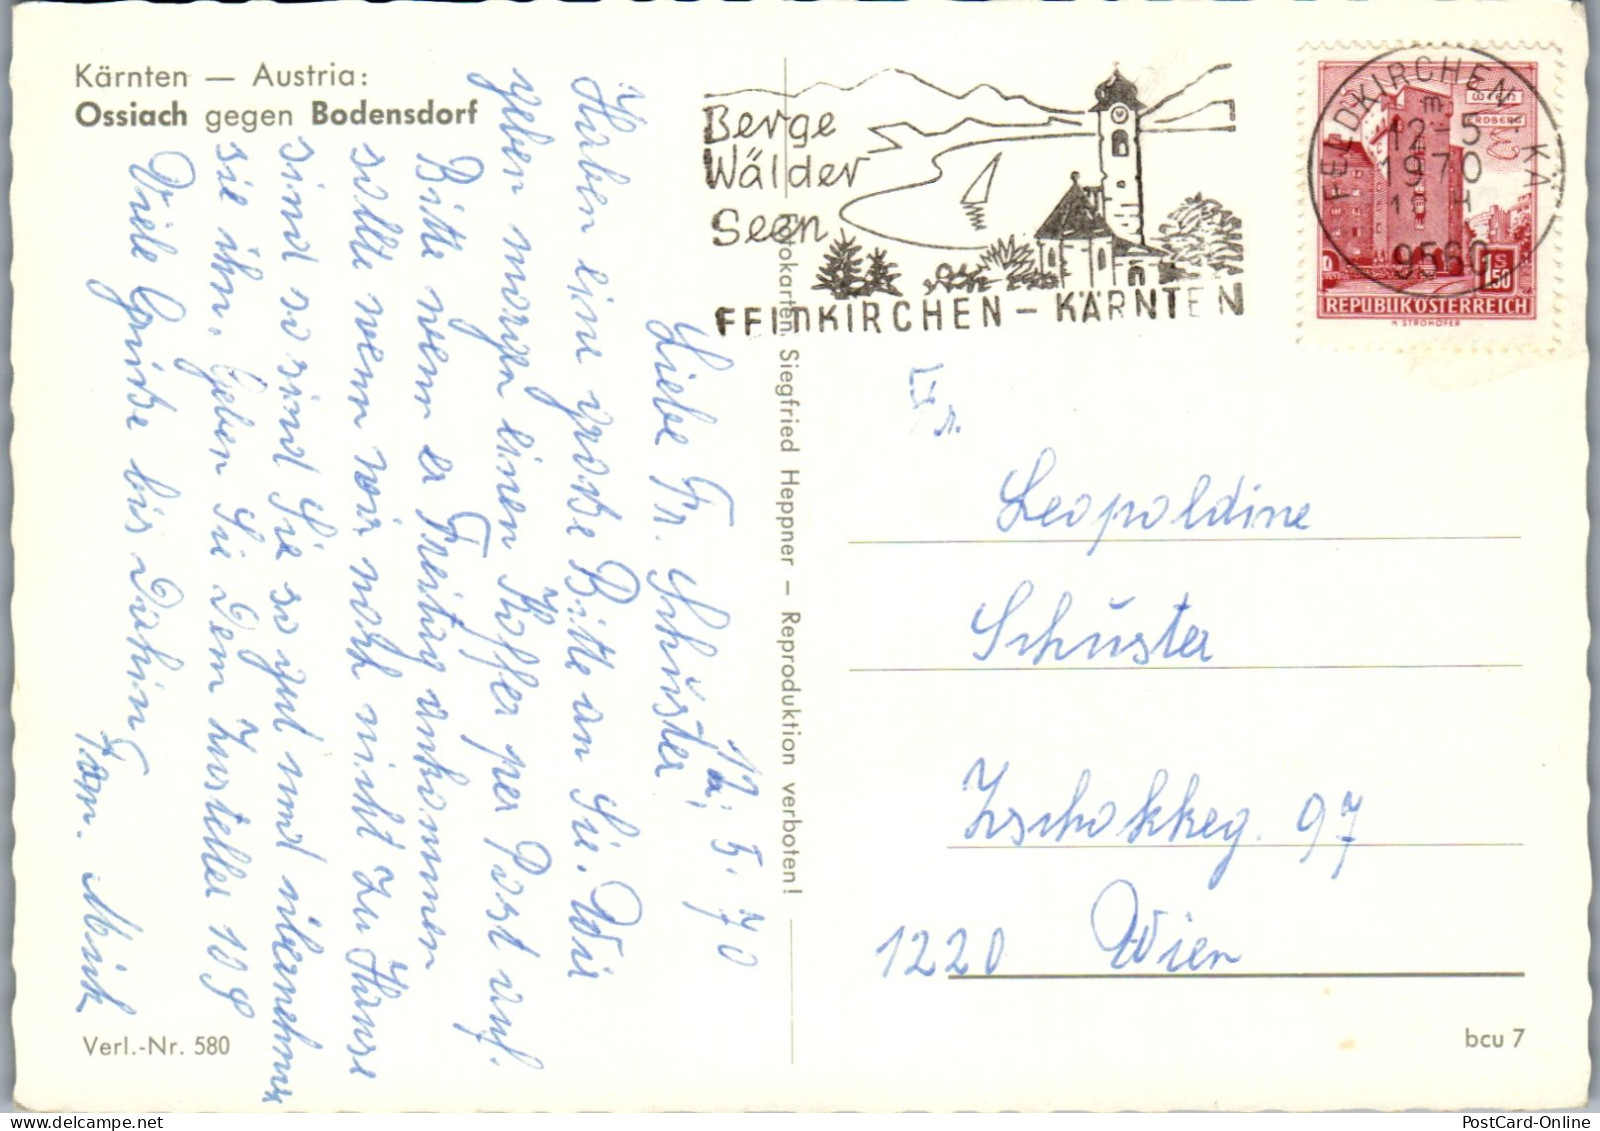 Kärnten — Austria:
Ossiach gegen Bodensdorf
11. 5. 70
Liebe Fr. Schuster
Haben eine große Bitte an Sie. Wir
geben morgen einen Koffer per Post auf.
Bitte wenn er Freitag ankommen
sollte wenn wir noch nicht zu Hause
sind so sind Sie so gut und übernehmen
sie ihn. Geben Sie dem Zusteller 10 S
Viele Grüße bis dahin
Fam. Minh
Verl.-Nr. 580
Fotokarten Siegfried Heppner — Reproduktion verboten!
Berge
Wälder
Seen
FELDKIRCHEN – KÄRNTEN
FELDKIRCHEN KÄ
12-5
1970
9560
Wien
ERDBERG
1S50
REPUBLIK ÖSTERREICH
H. STROHOFER
Fr.
Leopoldine
Schuster
Zschokkeg. 97
1220 Wien
bcu 7
PostCard-Online